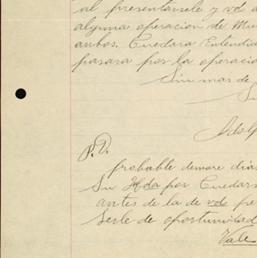 al presentársele y vd a
alguna operacion de Mu
anbos. Quedara Entendid
pasara por la operacio
Sin mas de
Su
Adol
P.D.
probable demore dias
Su Hda por Quedars
antes de la de vds pe
serle de oportunidad
Vale